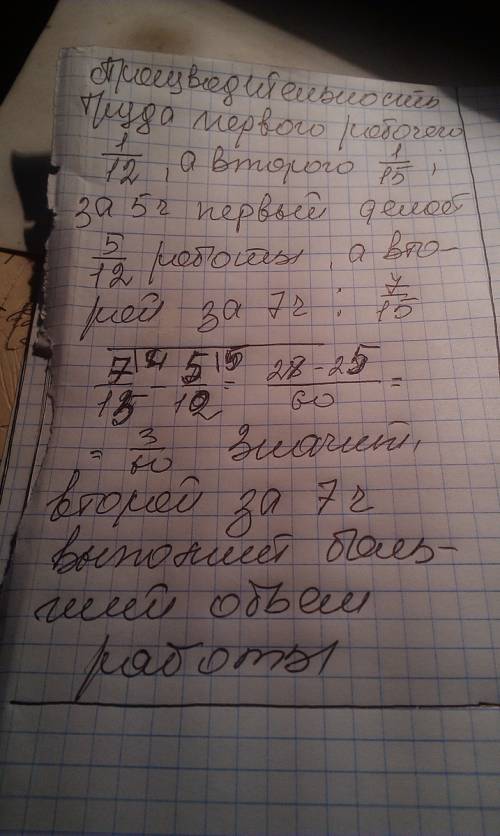 Производительность
труда первого рабочего
1/12, а второго 1/15;
за 5ч первый делает
5/12 работы, а вто-
рой за 7ч : 7/15
7|4/15 - 5|5/12 = 28-25/60 =
= 3/60 Значит,
второй за 7ч
выполнит боль-
ший объем
работы